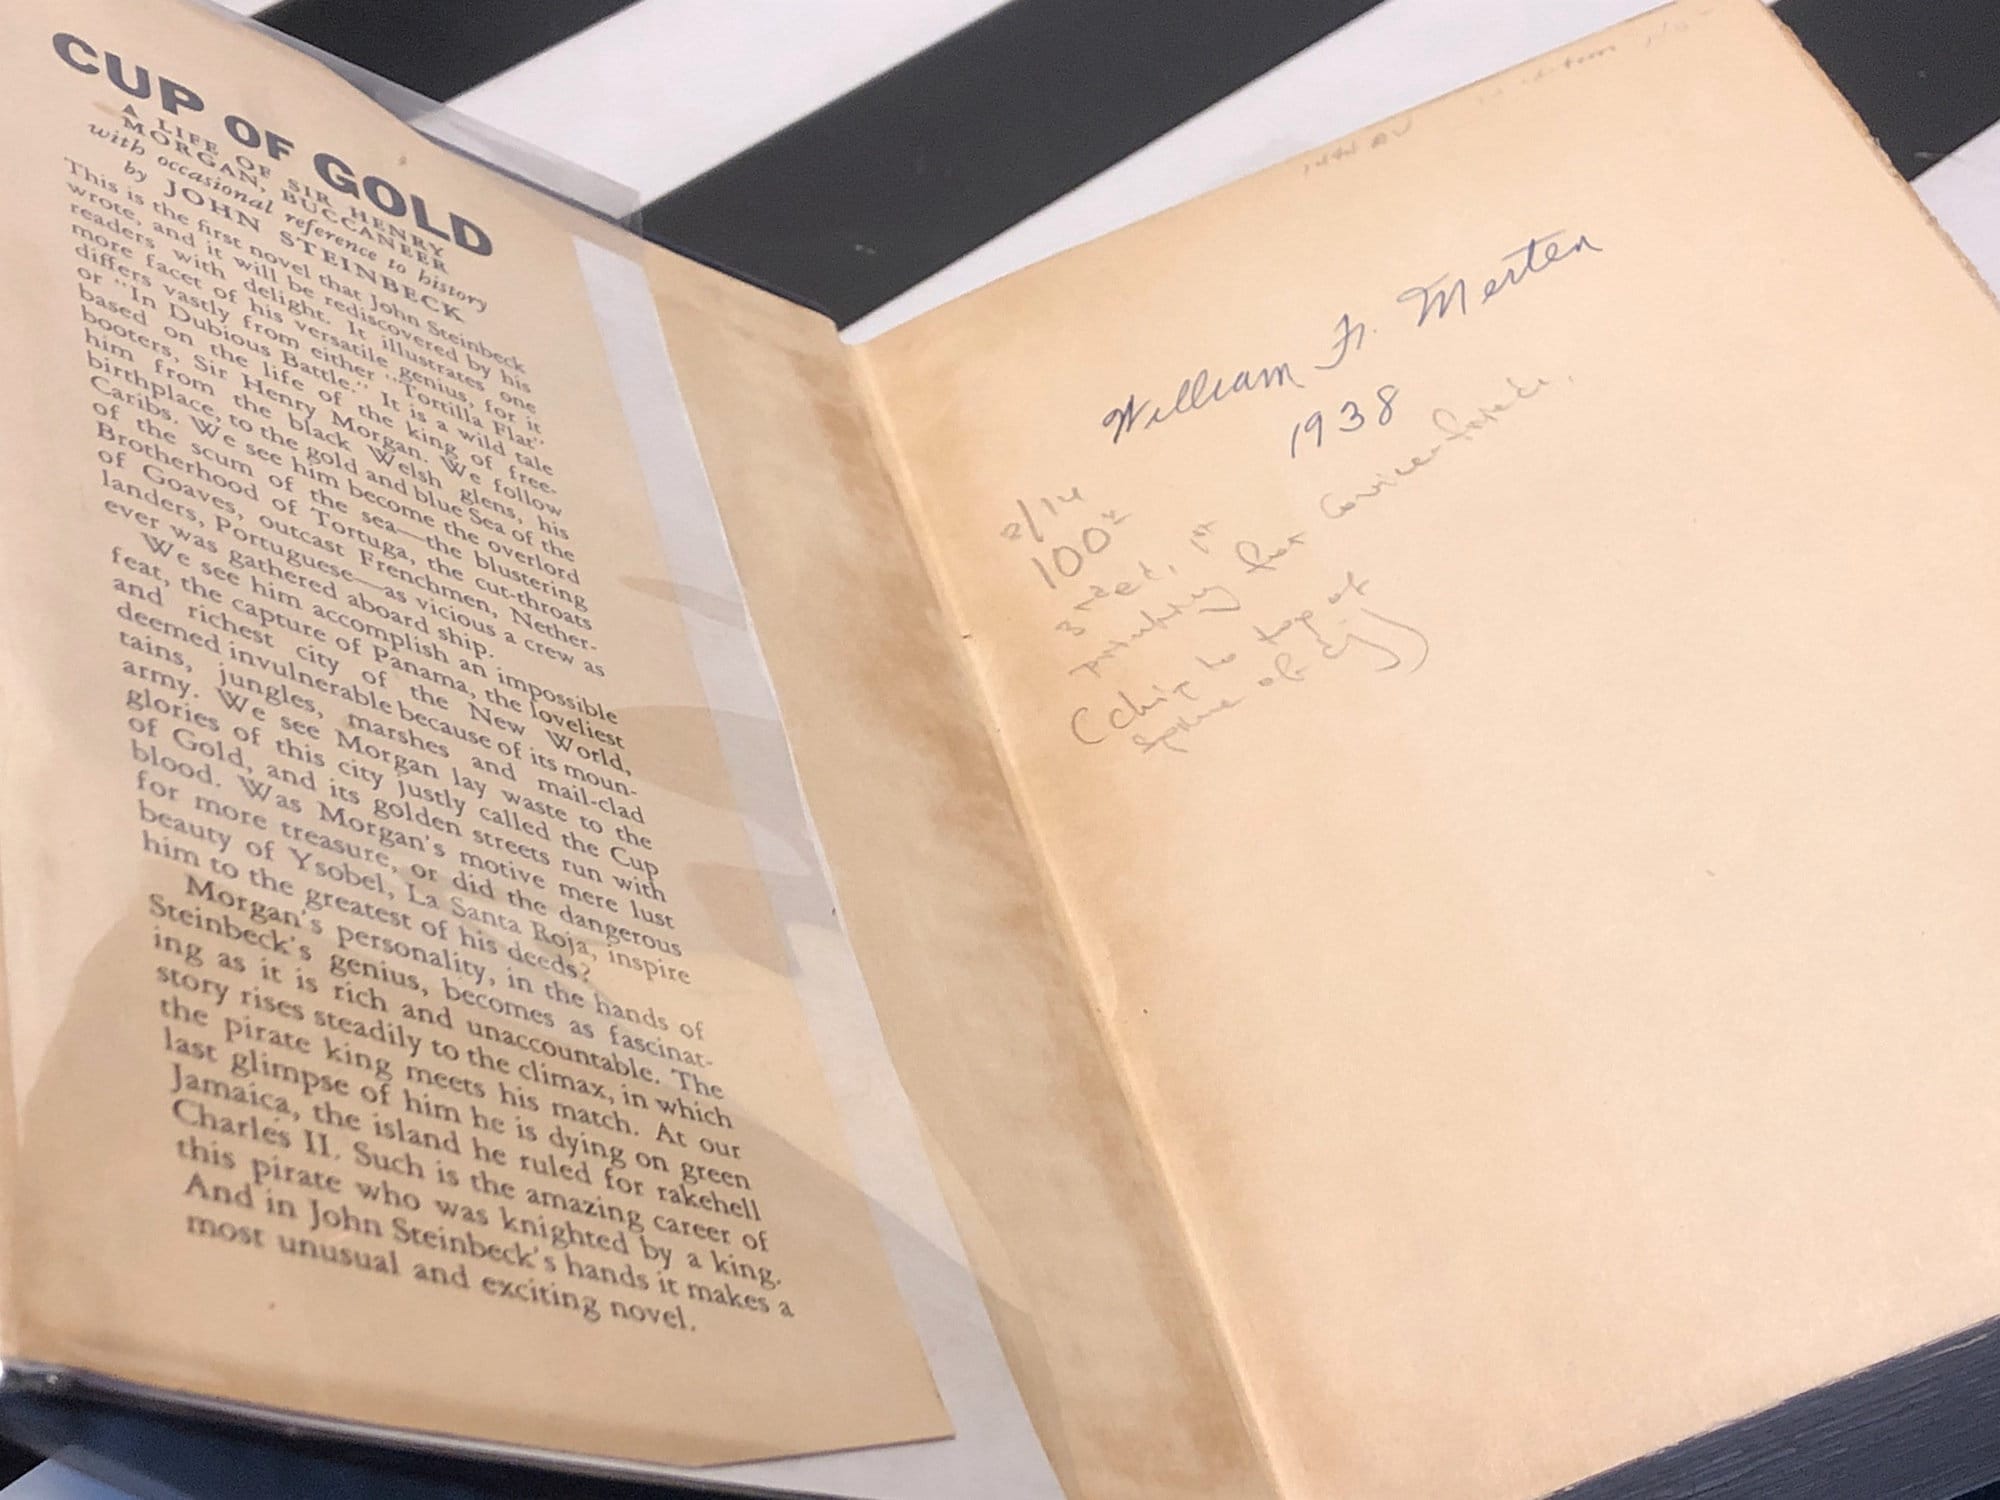 CUP OF GOLD
A LIFE OF SIR HENRY
MORGAN, BUCCANEER
with occasional reference to history
by JOHN STEINBECK
This is the first novel that John Steinbeck
wrote, and it will be rediscovered by his
readers with delight. It illustrates one
more facet of his versatile genius, for it
differs vastly from either "Tortilla Flat"
or "In Dubious Battle." It is a wild tale
based on the life of the king of free-
booters, Sir Henry Morgan. We follow
him from the black Welsh glens, his
birthplace, to the gold and blue Sea of the
Caribs. We see him become the overlord
of the scum of the sea—the blustering
Brotherhood of Tortuga, the cut-throats
of Goaves, outcast Frenchmen, Nether-
landers, Portuguese—as vicious a crew as
ever was gathered aboard ship.
We see him accomplish an impossible
feat, the capture of Panama, the loveliest
and richest city of the New World,
deemed invulnerable because of its moun-
tains, jungles, marshes and mail-clad
army. We see Morgan lay waste to the
glories of this city justly called the Cup
of Gold, and its golden streets run with
blood. Was Morgan's motive mere lust
for more treasure, or did the dangerous
beauty of Ysobel, La Santa Roja, inspire
him to the greatest of his deeds?
Morgan's personality, in the hands of
Steinbeck's genius, becomes as fascinat-
ing as it is rich and unaccountable. The
story rises steadily to the climax, in which
the pirate king meets his match. At our
last glimpse of him he is dying on green
Jamaica, the island he ruled for rakehell
Charles II. Such is the amazing career of
this pirate who was knighted by a king.
And in John Steinbeck's hands it makes a
most unusual and exciting novel.
William F. Merten
1938
2/14
100
3rd ed, 1st
printing for Covici-Friede.
(chip to top of
spine of dj)